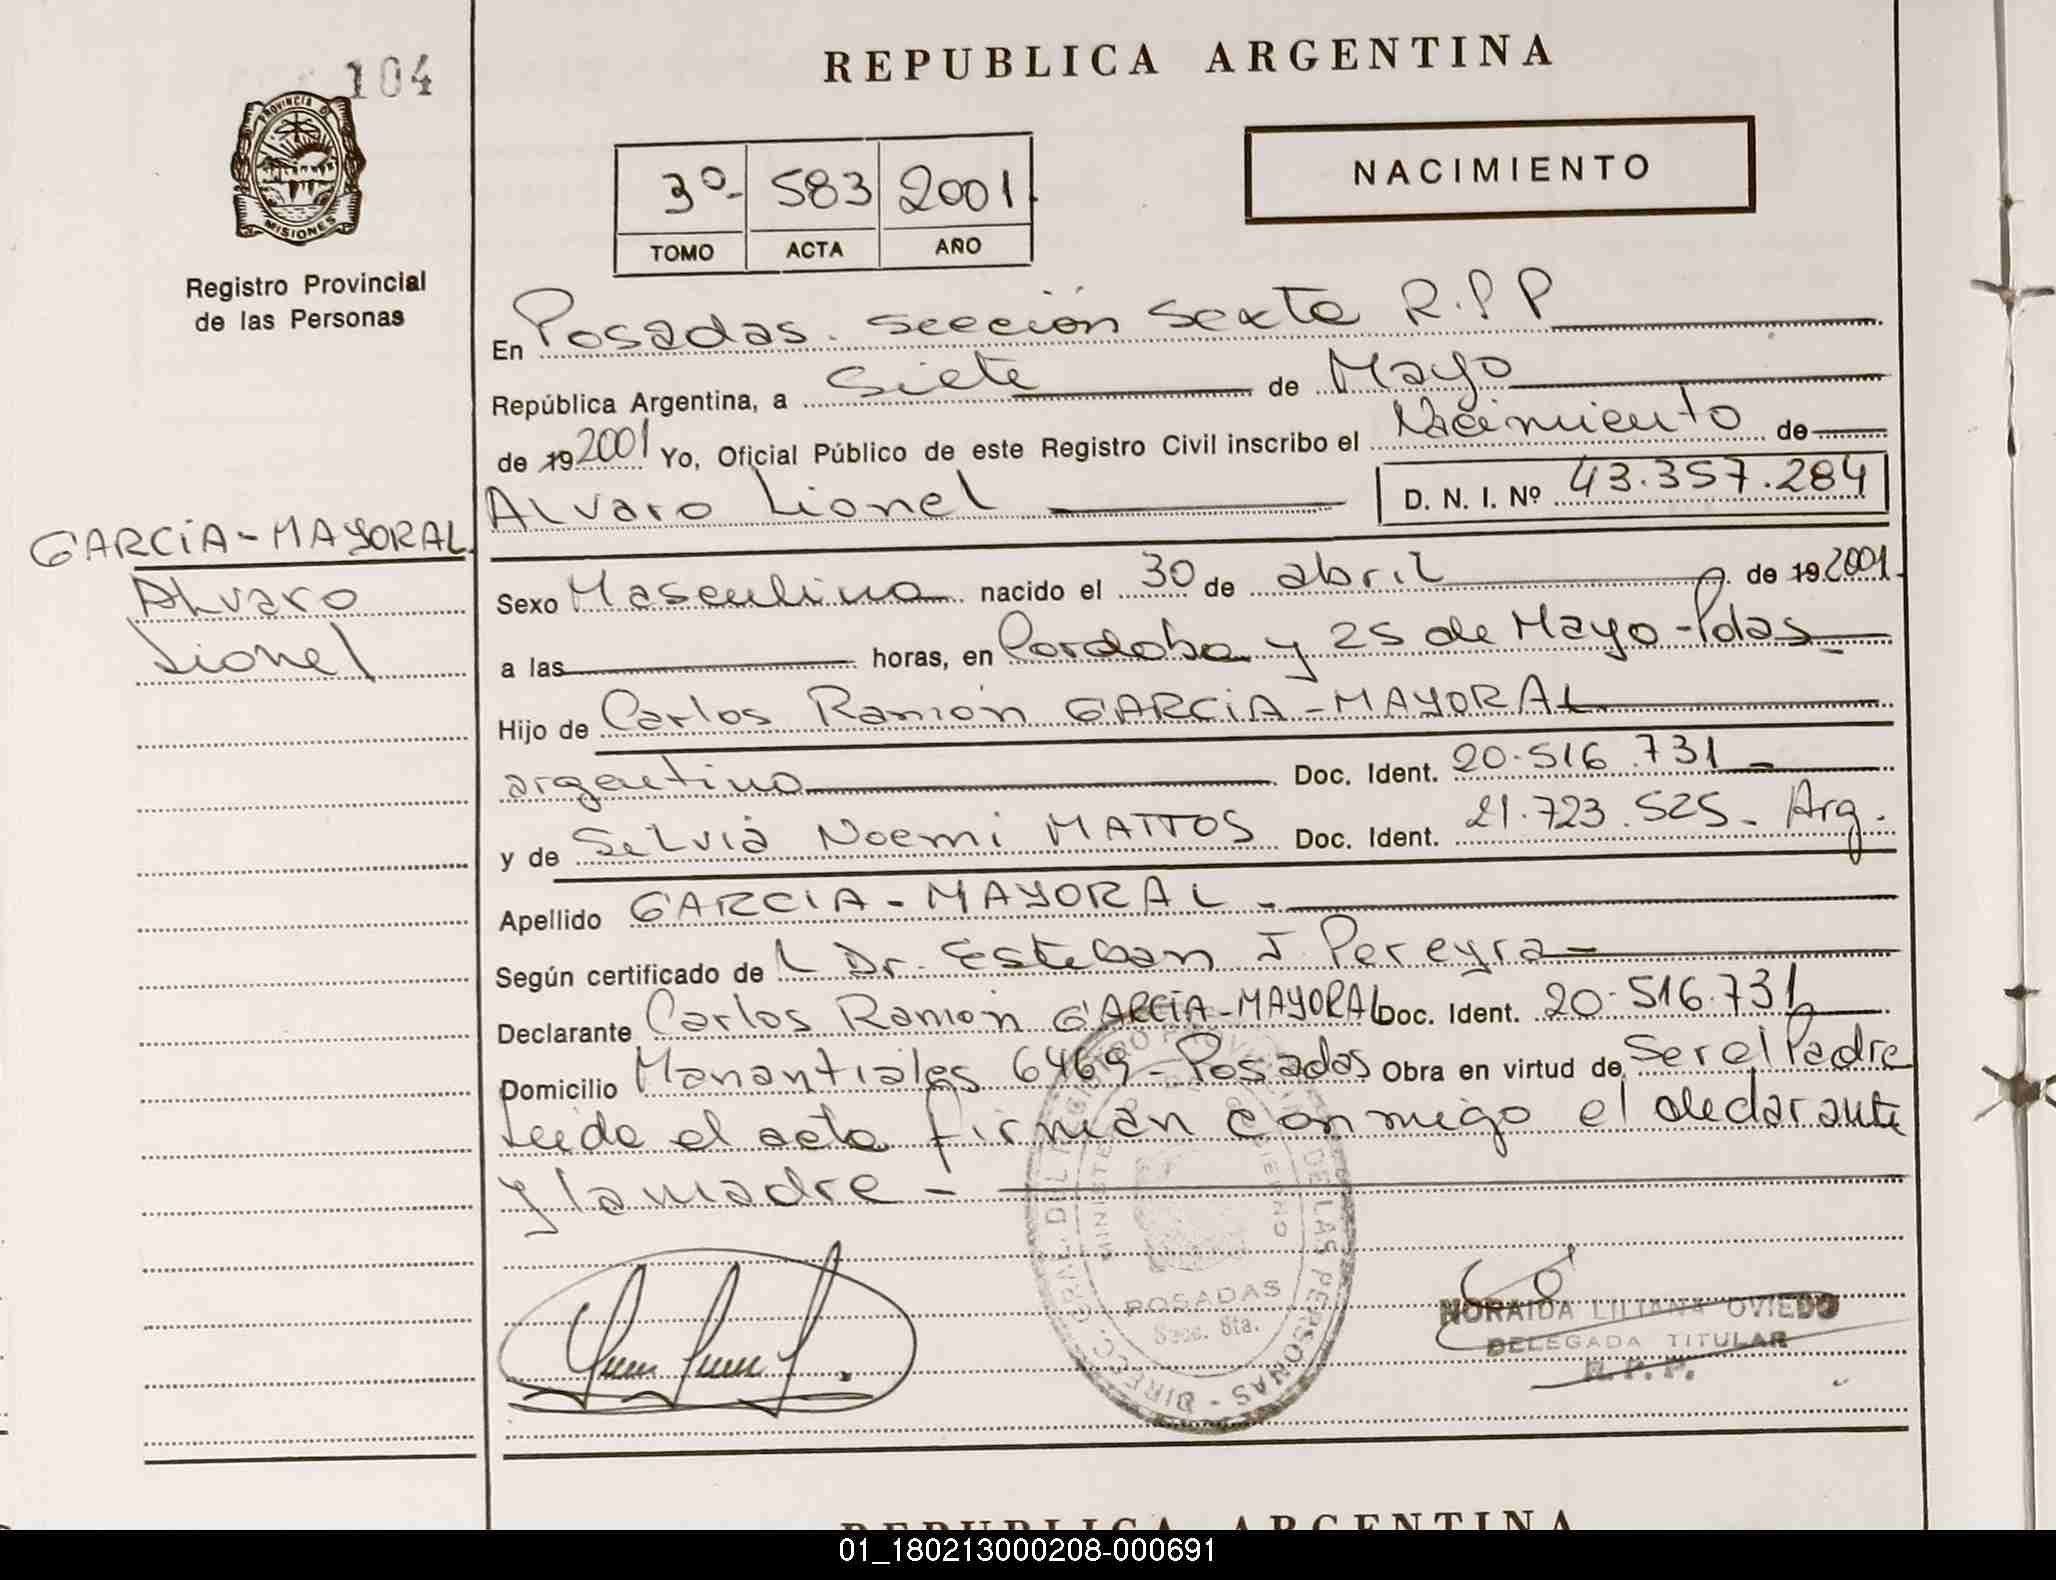 104
REPUBLICA ARGENTINA
PROVINCIA D
MISIONES
Registro Provincial
de las Personas
3º- 583 2001
TOMO ACTA AÑO
NACIMIENTO
En Posadas. Sección Sexta R.P.P
República Argentina, a Siete de Mayo
de 19 2001 Yo, Oficial Público de este Registro Civil inscribo el Nacimiento de
Alvaro Lionel D. N. I. Nº 43.357.284
GARCiA-MAYORAL
Alvaro
Lionel
Sexo Masculino nacido el 30 de abril de 19 2001
a las horas, en Cordoba y 25 de Mayo-Pdas
Hijo de Carlos Ramón GARCiA-MAYORAL
argentino Doc. Ident. 20.516.731
y de Silvia Noemi MATTOS Doc. Ident. 21.723.525- Arg.
Apellido GARCIA-MAYORAL-
Según certificado de L Dr. Esteban J. Pereyra
Declarante Carlos Ramón GARCIA-MAYORAL Doc. Ident. 20.516.731
Domicilio Manantiales 6469-Posadas Obra en virtud de Ser el Padre
Leida el acta firman conmigo el declarante
y la madre-
DIRECC. GRAL. DEL REGISTRO PROVINCIAL DE LAS PERSONAS -
MINISTE GOBIERNO
POSADAS
Secc. 6ta.
NORAIDA LILIANA OVIEDO
DELEGADA TITULAR
R.P.P.
REPUBLICA ARGENTINA
01_180213000208-000691